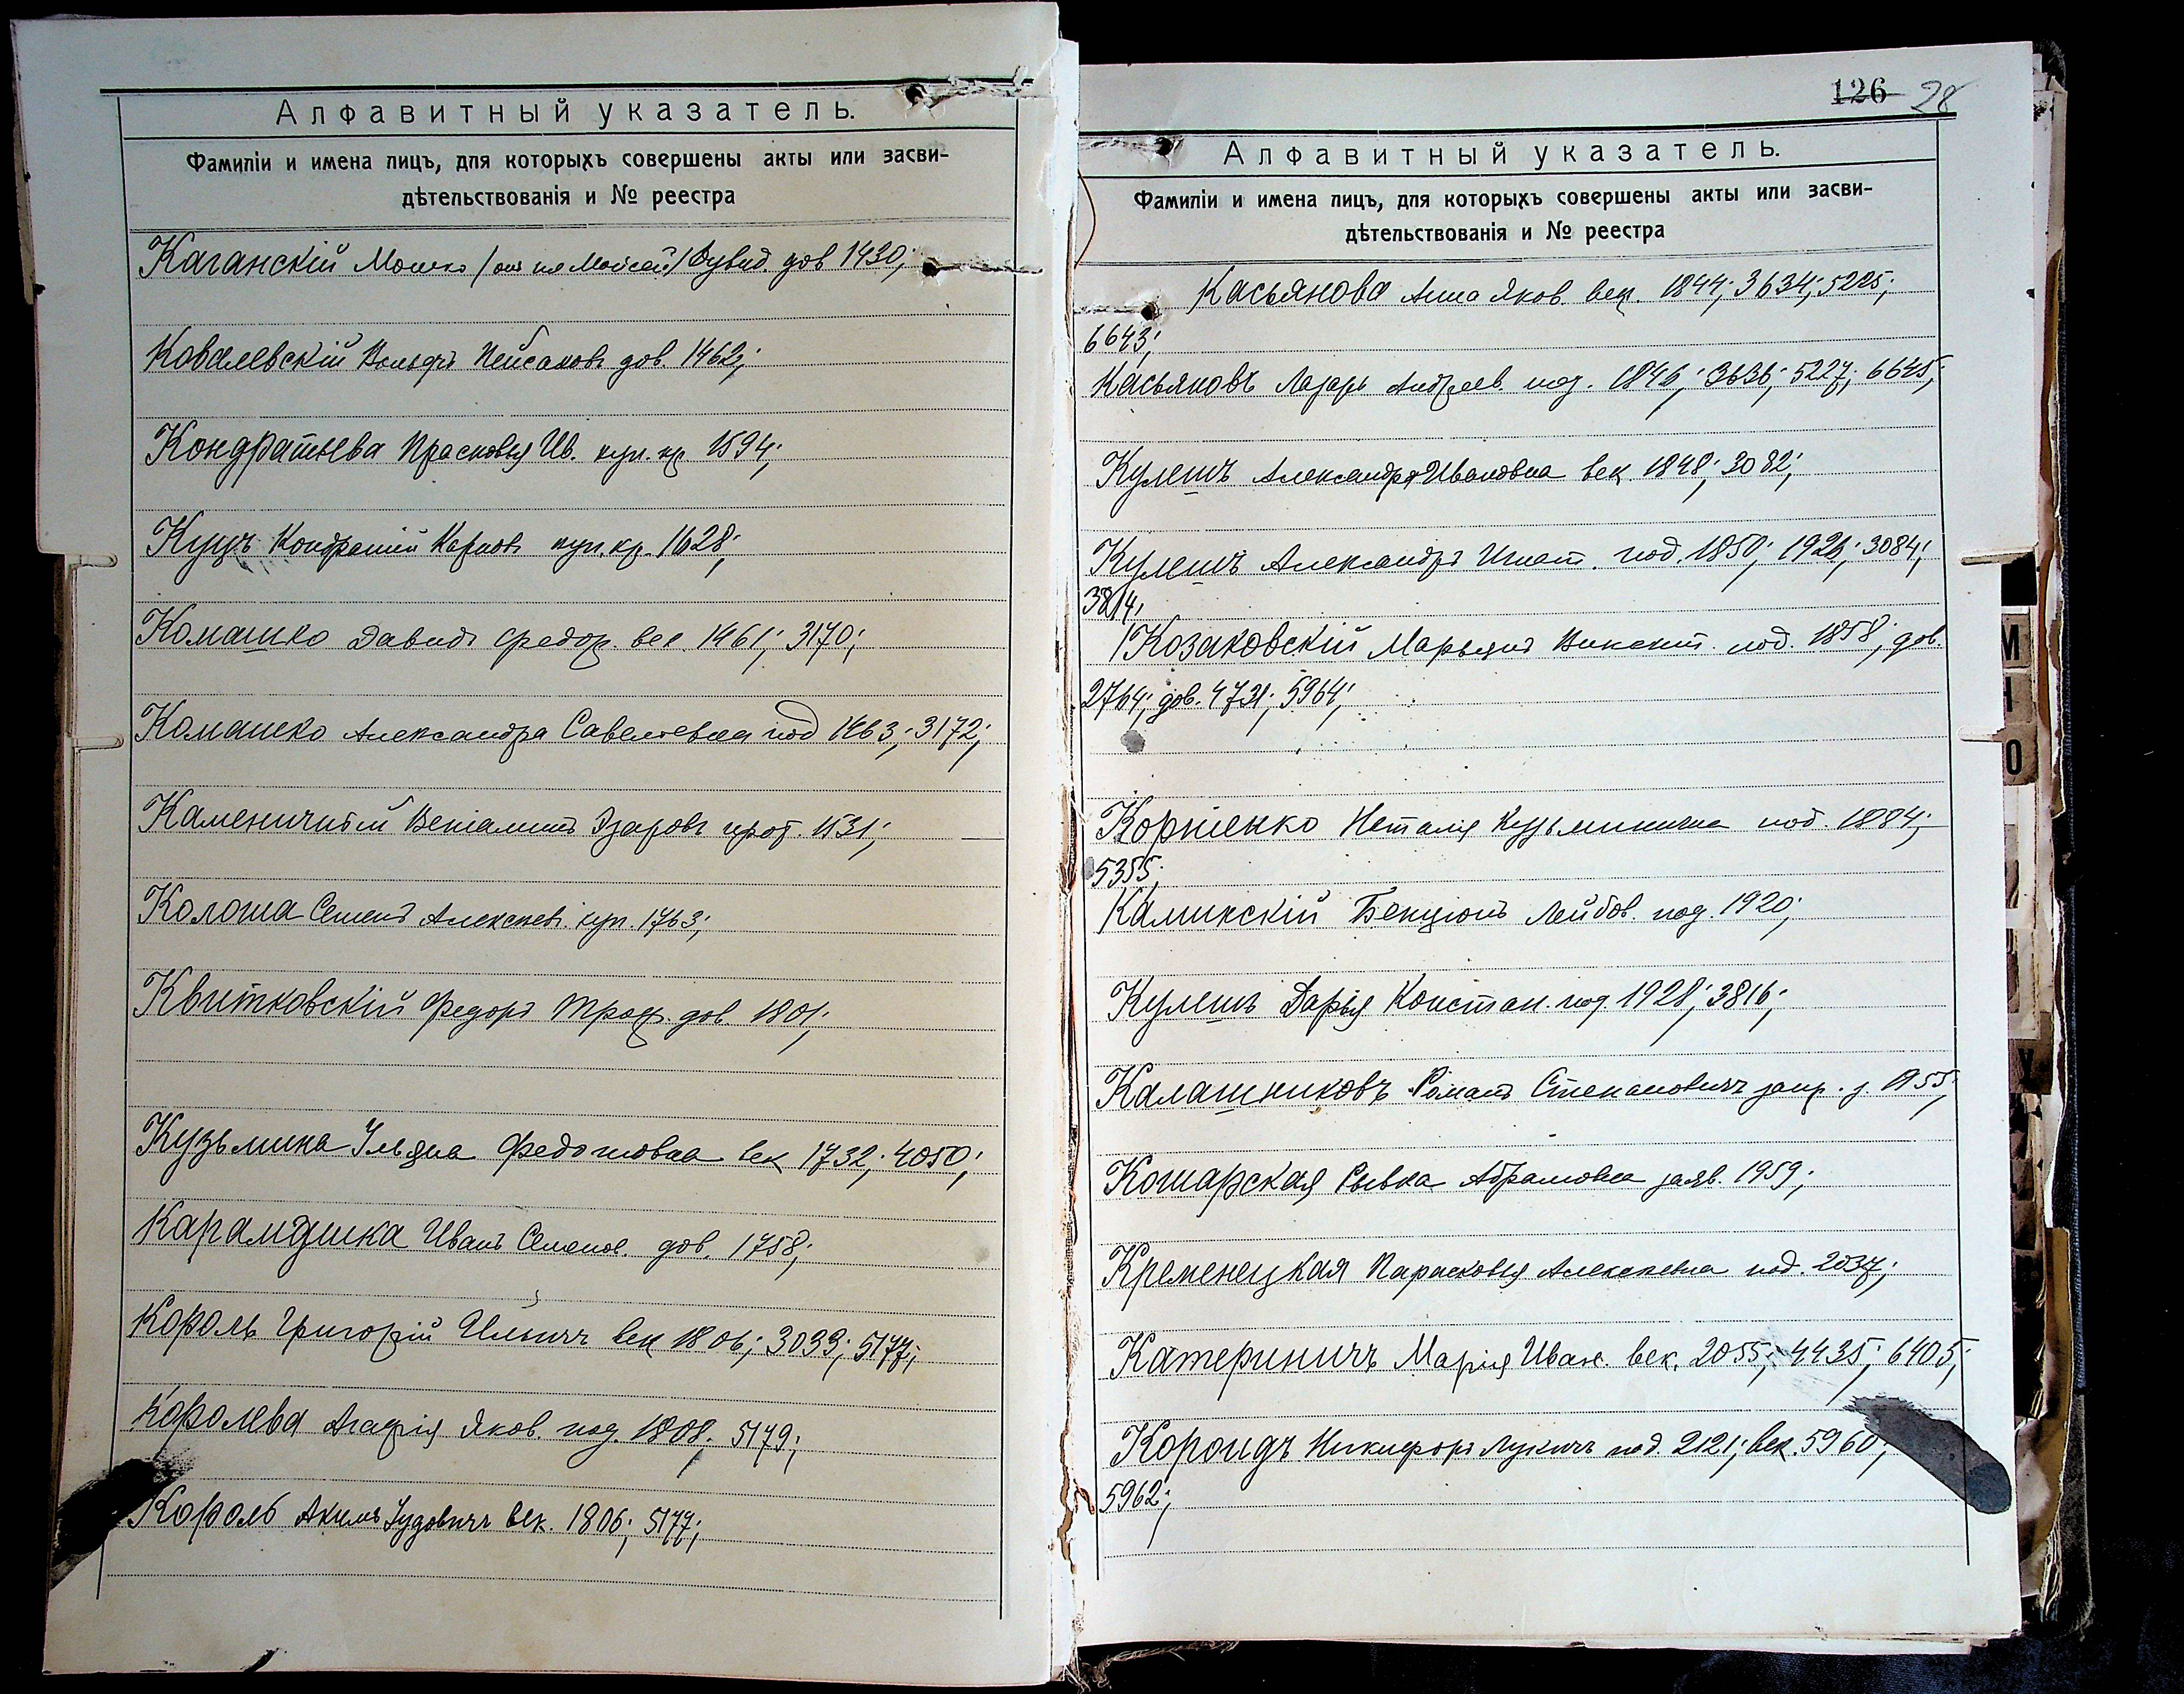 Алфавитный указатель.
Фамиліи и имена лицъ, для которыхъ совершены акты или засви-
дѣтельствованія и № реестра
Каганскій Мошко /онъ же Мойсей/ Дувид. дов 1430;
Ковалевскій Вольфъ Пейсаховъ дов. 1462;
Кондратьева Прасковья Ив. куп. кр. 1594;
Куцъ Кондратій Карповъ куп. кр. 1628;
Комашко Давидъ Федор. век. 1461; 3170;
Комашко Александра Савельевна под 1463; 3172;
Каменичный Веніаминъ Озаровъ прот. 1531;
Колоша Семенъ Алексѣев. куп. 1763;
Квитковскій Федоръ Троф. дов. 1801;
Кузьмина Ульяна Федотовна век 1732; 4050;
Карамушка Иванъ Семенов. дов. 1758;
Король Григорій Ильичъ век 1806; 3033; 5177;
Королева Агафія Яков. под. 1808; 5179;
Король Акимъ Іудовичъ век. 1806; 5177;
126 28
Алфавитный указатель.
Фамиліи и имена лицъ, для которыхъ совершены акты или засви-
дѣтельствованія и № реестра
Касьянова Анна Яков. век. 1844; 3634; 5225;
6643;
Касьяновъ Лазарь Андреев. под. 1846; 3636; 5227; 6645;
Кулешъ Александра Ивановна век. 1848; 3082;
Кулешъ Александръ Игнат. под. 1850; 1926; 3084;
3814;
Козаковскій Марьянъ Викент. под. 1858; дов.
2764; дов. 4731; 5964;
Корніенко Наталія Кузьминична под. 1884;
5355;
Каминскій Бенціонъ Лейбов. под. 1920;
Кулешъ Дарья Констан. под. 1928; 3816;
Калашниковъ Романъ Степановичъ запр. з. 1955;
Кошарская Сывка Абрамовна заяв. 1959;
Кременецкая Парасковья Алексѣевна под. 2037;
Катериничъ Марія Иван. век. 2055; 4435; 6405;
Короидъ Никифоръ Лукичъ под. 2121; век. 5960;
5962;
М
І
О
У